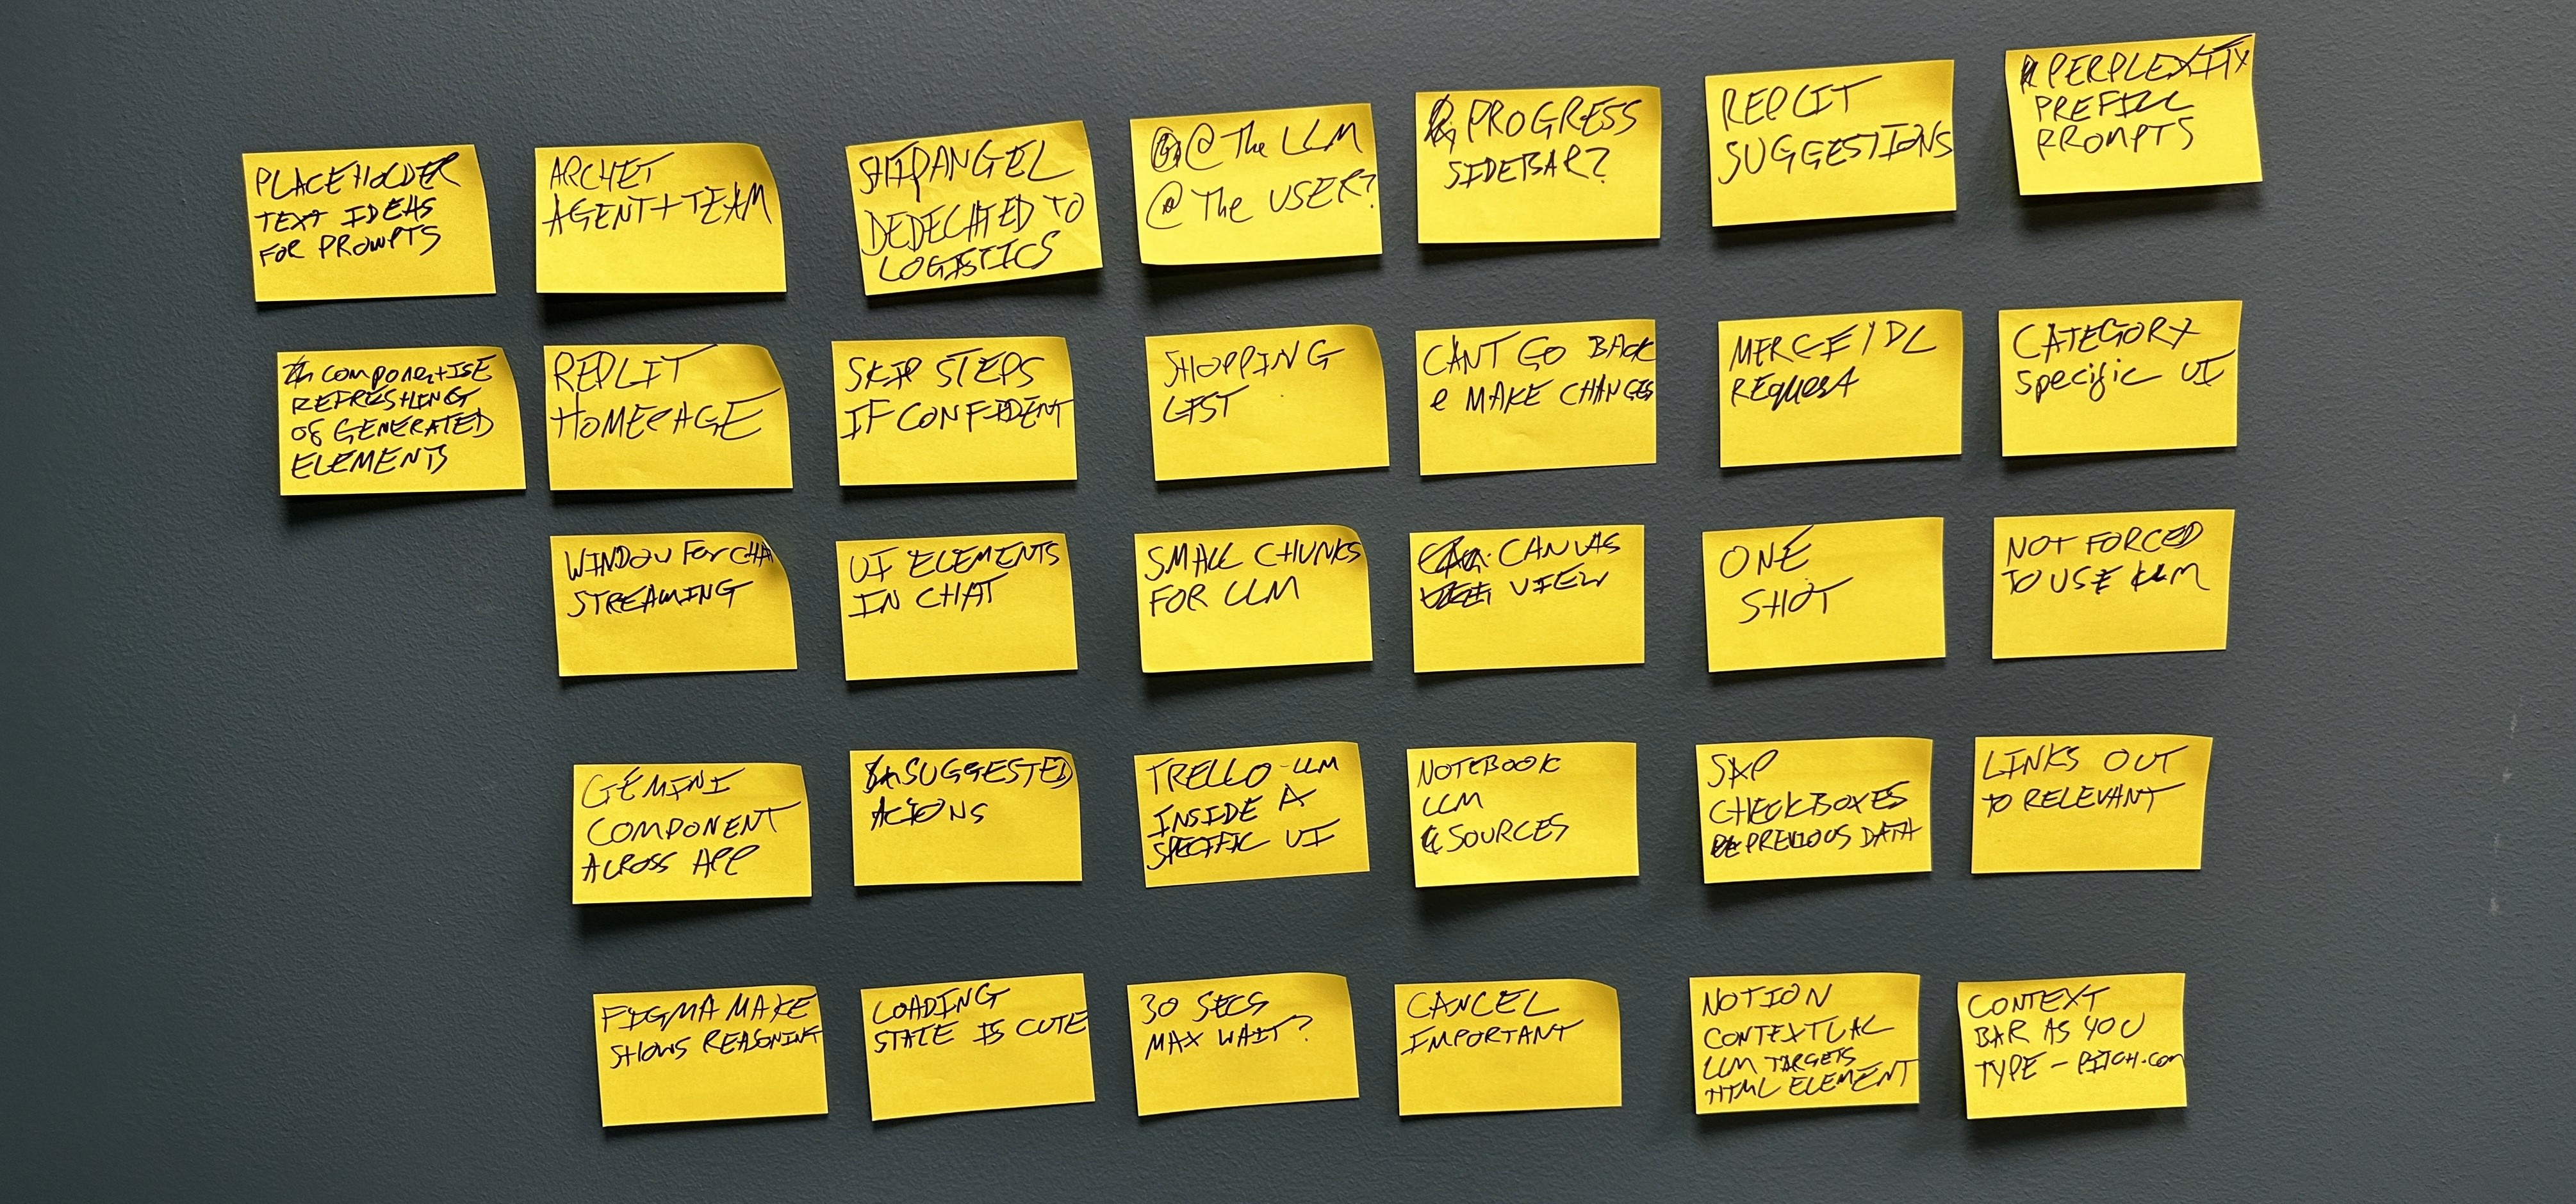 PLACEHOLDER
TEXT IDEAS
FOR PROMPTS
ARCHET
AGENT + TEAM
SHIPANGEL
DEDECATED TO
LOGISTICS
@ The LLM
@ The USER?
PROGRESS
SIDEBAR?
REPLIT
SUGGESTIONS
PERPLEXITY
PREFILL
PROMPTS
COMPONENTISE
REFRESHING
OF GENERATED
ELEMENTS
REPLIT
HOMEPAGE
SKIP STEPS
IF CONFIDENT
SHOPPING
LIST
CANT GO BACK
& MAKE CHANGES
MERGE / DL
REQUEST
CATEGORY
Specific UI
WINDOW For CHA
STREAMING
UI ELEMENTS
IN CHAT
SMALL CHUNKS
FOR LLM
CANVAS
VIEW
ONE
SHOT
NOT FORCED
TO USE LLM
GEMINI
COMPONENT
ACROSS APP
SUGGESTED
ACTIONS
TRELLO - LLM
INSIDE A
SPECIFIC UI
NOTEBOOK
LLM
SOURCES
CHECKBOXES
PREVIOUS DATA
LINKS OUT
TO RELEVANT
FIGMA MAKE
SHOWS REASONING
LOADING
STATE IS CUTE
30 SECS
MAX WAIT?
CANCEL
IMPORTANT
NOTION
CONTEXTUAL
LLM TARGETS
HTML ELEMENT
CONTEXT
BAR AS YOU
TYPE - PITCH.COM